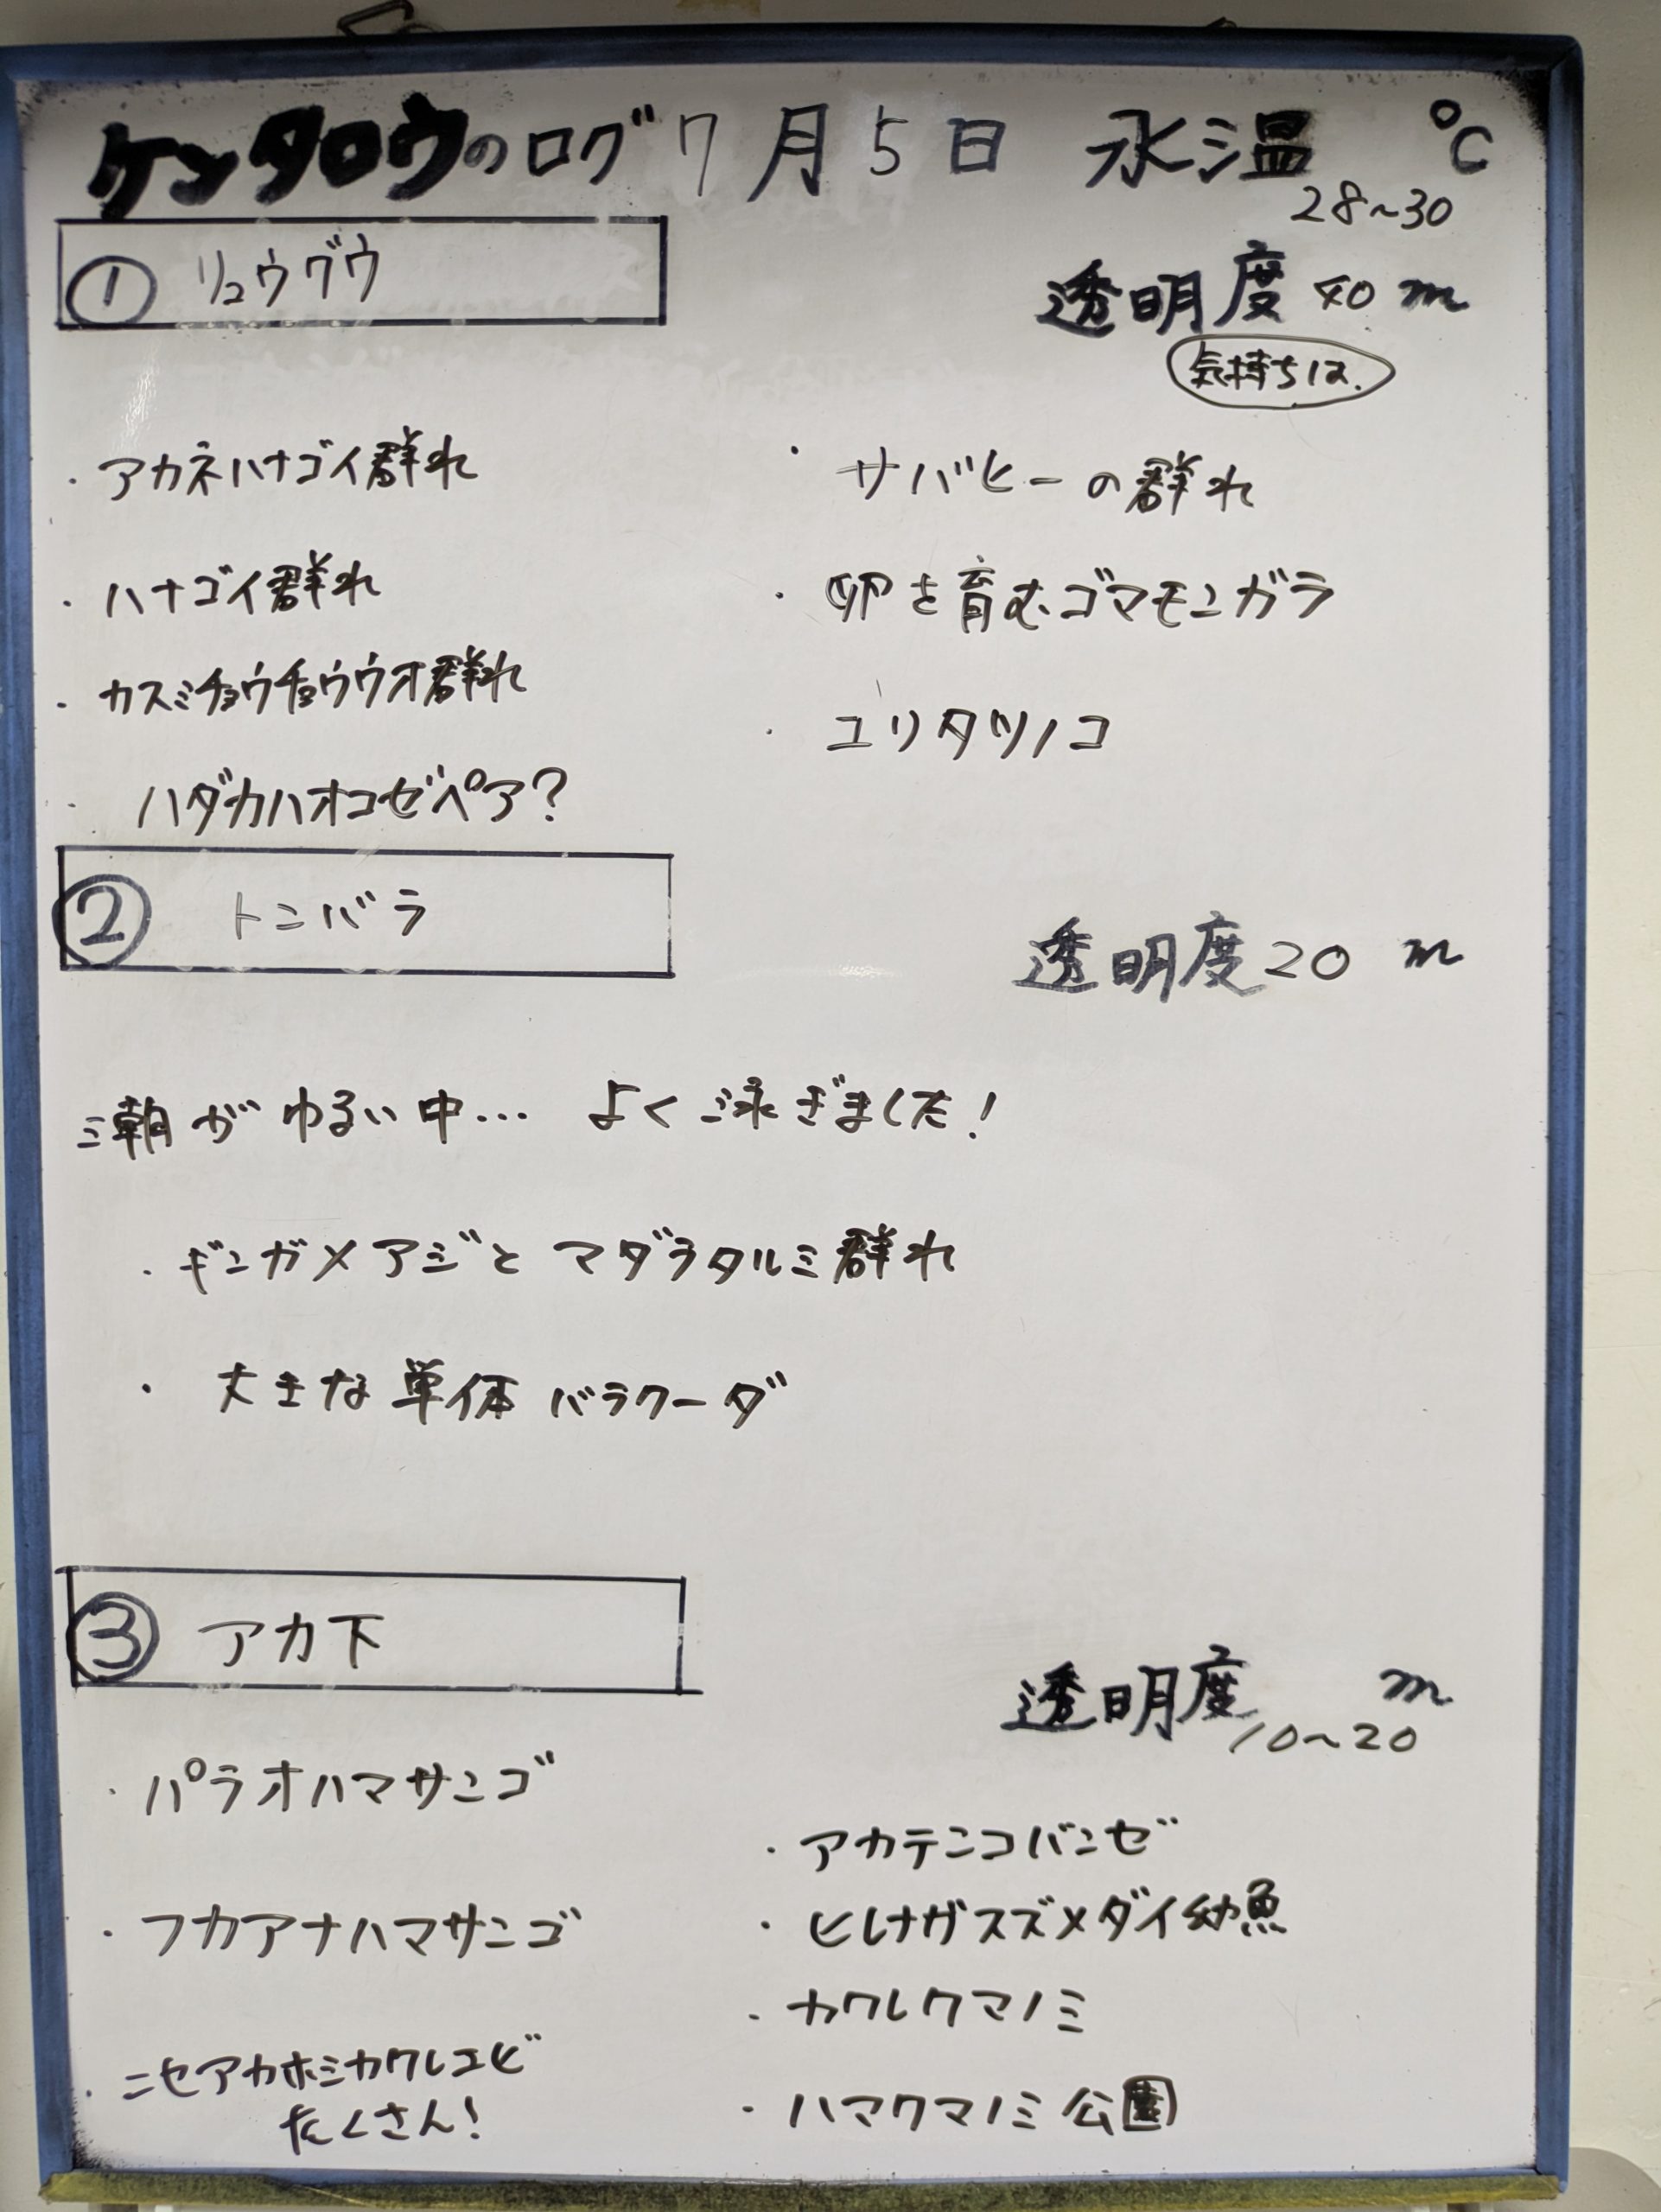 ケンタロウのログ 7月5日 水温 ℃
28~30
① リュウグウ
透明度 40 m
気持ちは.
・アカネハナゴイ群れ
・ハナゴイ群れ
・カスミチョウチョウウオ群れ
・ハダカハオコゼペア?
・サバヒーの群れ
・卵を育むゴマモンガラ
・ユリタツノコ
② トンバラ
透明度 20 m
潮がゆるい中… よく泳ぎました!
・ギンガメアジとマダラタルミ群れ
・大きな単体バラクーダ
③ アカ下
透明度 m
10~20
・パラオハマサンゴ
・フカアナハマサンゴ
・ニセアカホシカクレエビ
たくさん!
・アカテンコバンゼ
・ヒレナガスズメダイ幼魚
・カクレクマノミ
・ハマクマノミ公園